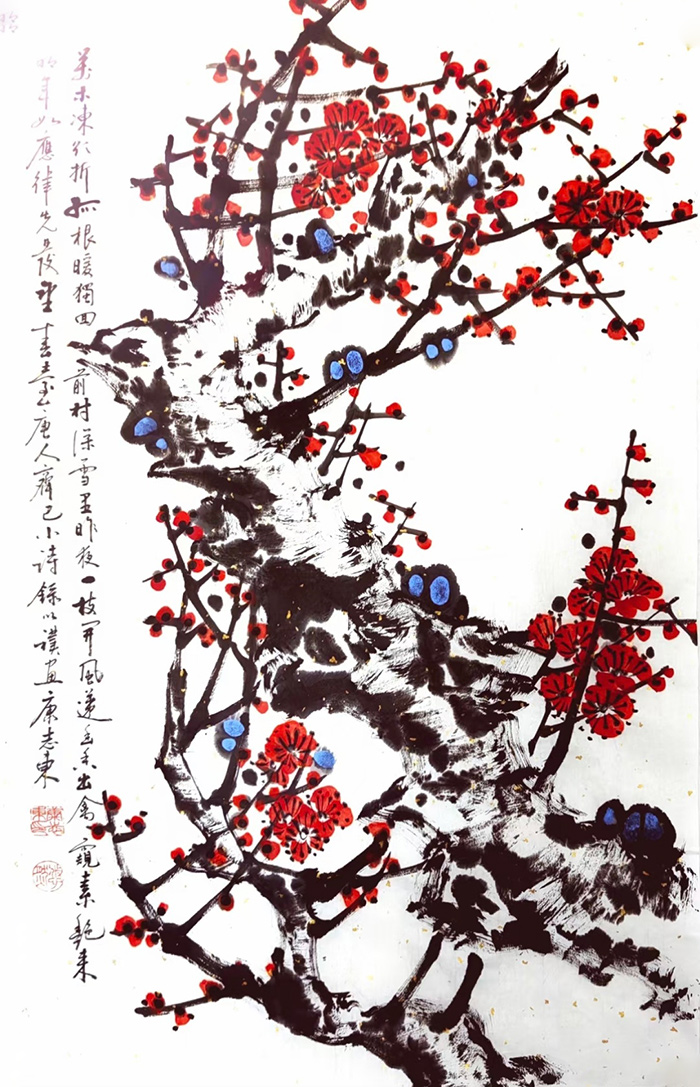 萬木凍欲折孤根暖獨回前村深雪里昨夜一枝開風遞幽香出禽窺素艷來
明年如應律先發望春臺唐人齊己小詩錄以補畫康志東